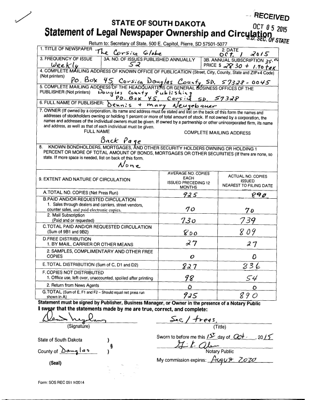 RECEIVED
OCT 05 2015
S.D. SEC. OF STATE
STATE OF SOUTH DAKOTA
Statement of Legal Newspaper Ownership and Circulation
Return to: Secretary of State, 500 E. Capitol, Pierre, SD 57501-5077
1. TITLE OF NEWSPAPER The Corsica Globe
2. DATE Oct. 1 2015
3. FREQUENCY OF ISSUE Weekly
3A. NO. OF ISSUES PUBLISHED ANNUALLY 52
3B. ANNUAL SUBSCRIPTION PRICE $
4. COMPLETE MAILING ADDRESS OF KNOWN OFFICE OF PUBLICATION (Street, City, County, State and ZIP+4 Code) (Not printers)
P.O. Box 45 Corsica Douglas County SD. 57328-0045
5. COMPLETE MAILING ADDRESS OF THE HEADQUARTERS OR GENERAL BUSINESS OFFICES OF THE
PUBLISHER (Not printers) Douglas County Publishing
P.O. Box 45, Corsica SD. 57328
6. FULL NAME OF PUBLISHER:
7. OWNER (If owned by a corporation, its name and address must be stated and also on the back of this form the names and
addresses of stockholders owning or holding 1 percent or more of total amount of stock. If not owned by a corporation, the
names and addresses of the individual owners must be given. If owned by a partnership or other unincorporated firm, its name
and address, as well as that of each individual must be given.
FULL NAME COMPLETE MAILING ADDRESS
Back Page
8. KNOWN BONDHOLDERS, MORTGAGES, AND OTHER SECURITY HOLDERS OWNING OR HOLDING 1
PERCENT OR MORE OF TOTAL AMOUNT OF BONDS, MORTGAGES OR OTHER SECURITIES (If there are none, so
state. If more space is needed, list on back of this form.
None
9. EXTENT AND NATURE OF CIRCULATION
AVERAGE NO. COPIES EACH ISSUED PRECEDING 12 MONTHS
ACTUAL NO. COPIES ISSUED NEAREST TO FILING DATE
A. TOTAL NO. COPIES (Net Press Run) 925 890
B. PAID AND/OR REQUESTED CIRCULATION
1. Sales through dealers and carriers, street vendors, counter sales, and paid electronic copies. 70 70
2. Mail Subscription (Paid and or requested) 730 739
C. TOTAL PAID AND/OR REQUESTED CIRCULATION (Sum of 9B1 and 9B2) 800 809
D. FREE DISTRIBUTION
1. BY MAIL, CARRIER OR OTHER MEANS 27 27
2. SAMPLES, COMPLIMENTARY AND OTHER FREE COPIES 0 0
E. TOTAL DISTRIBUTION (Sum of C, D1 and D2) 827 836
F. COPIES NOT DISTRIBUTED
1. Office use, left over, unaccounted, spoiled after printing 98 54
2. Return from News Agents 0 0
G. TOTAL (Sum of E, F1 and F2 - Should equal net press run shown in A) 925 890
Statement must be signed by Publisher, Business Manager, or Owner in the presence of a Notary Public
I swear that the statements made by me are true, correct, and complete:
Sec/treas.
(Signature) (Title)
State of South Dakota )
County of Douglas )
Sworn to before me this 1st day of Oct 2015
Notary Public
(Seal)
My commission expires: August 2020
Form: SOS REC 051 4/2014